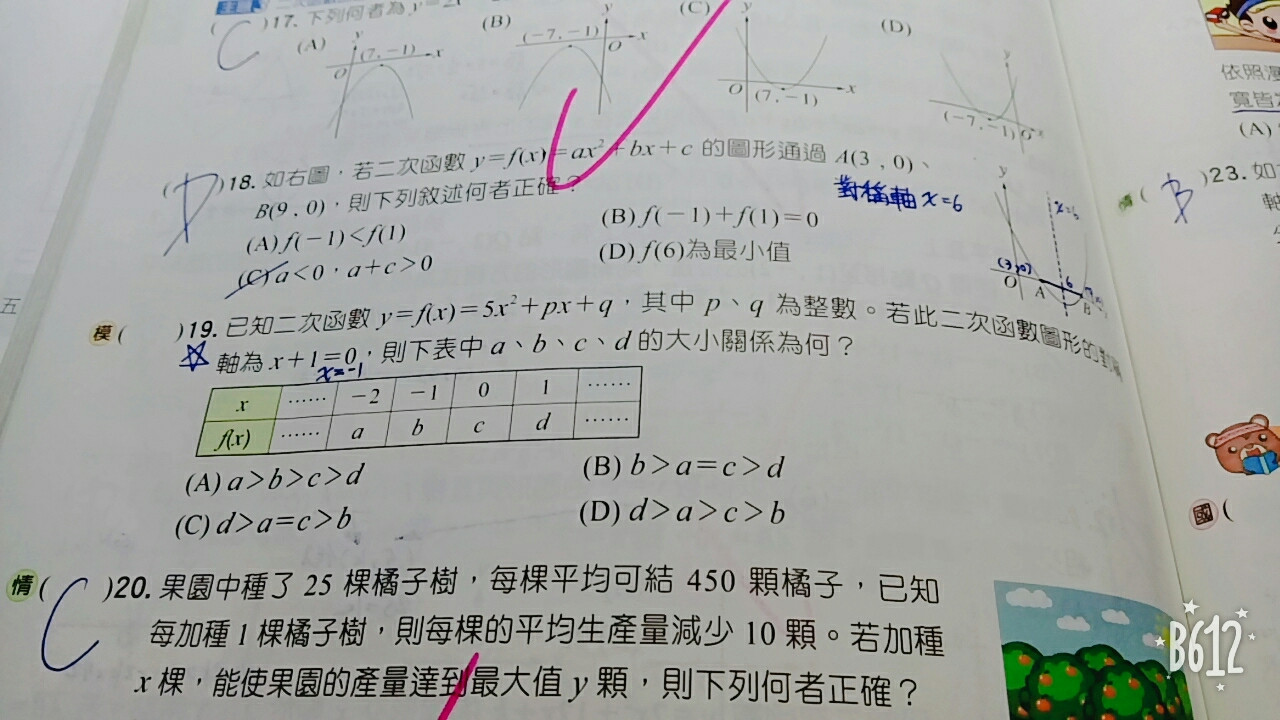 (C)17.下列何者為 y=2
(A) (B) (C) (D)
y (7,-1) x O
(-7,-1) y O x
y O (7,-1) x
y (-7,-1) O x
(D)18.如右圖,若二次函數 y=f(x)=ax²+bx+c 的圖形通過 A(3,0)、
B(9,0),則下列敘述何者正確?
對稱軸 x=6
(A) f(-1)<f(1)
(B) f(-1)+f(1)=0
(C) a<0,a+c>0
(D) f(6)為最小值
y x=6 (3,0) O A 6 B
模( )19.已知二次函數 y=f(x)=5x²+px+q,其中 p、q 為整數。若此二次函數圖形的對稱
軸為 x+1=0,則下表中 a、b、c、d 的大小關係為何?
x=-1
x …… -2 -1 0 1 ……
f(x) …… a b c d ……
(A) a>b>c>d
(B) b>a=c>d
(C) d>a=c>b
(D) d>a>c>b
情(C)20.果園中種了 25 棵橘子樹,每棵平均可結 450 顆橘子,已知
每加種 1 棵橘子樹,則每棵的平均生產量減少 10 顆。若加種
x 棵,能使果園的產量達到最大值 y 顆,則下列何者正確?
五
依照
寬皆
(A)
情(B)23.如
軸
國(
B612